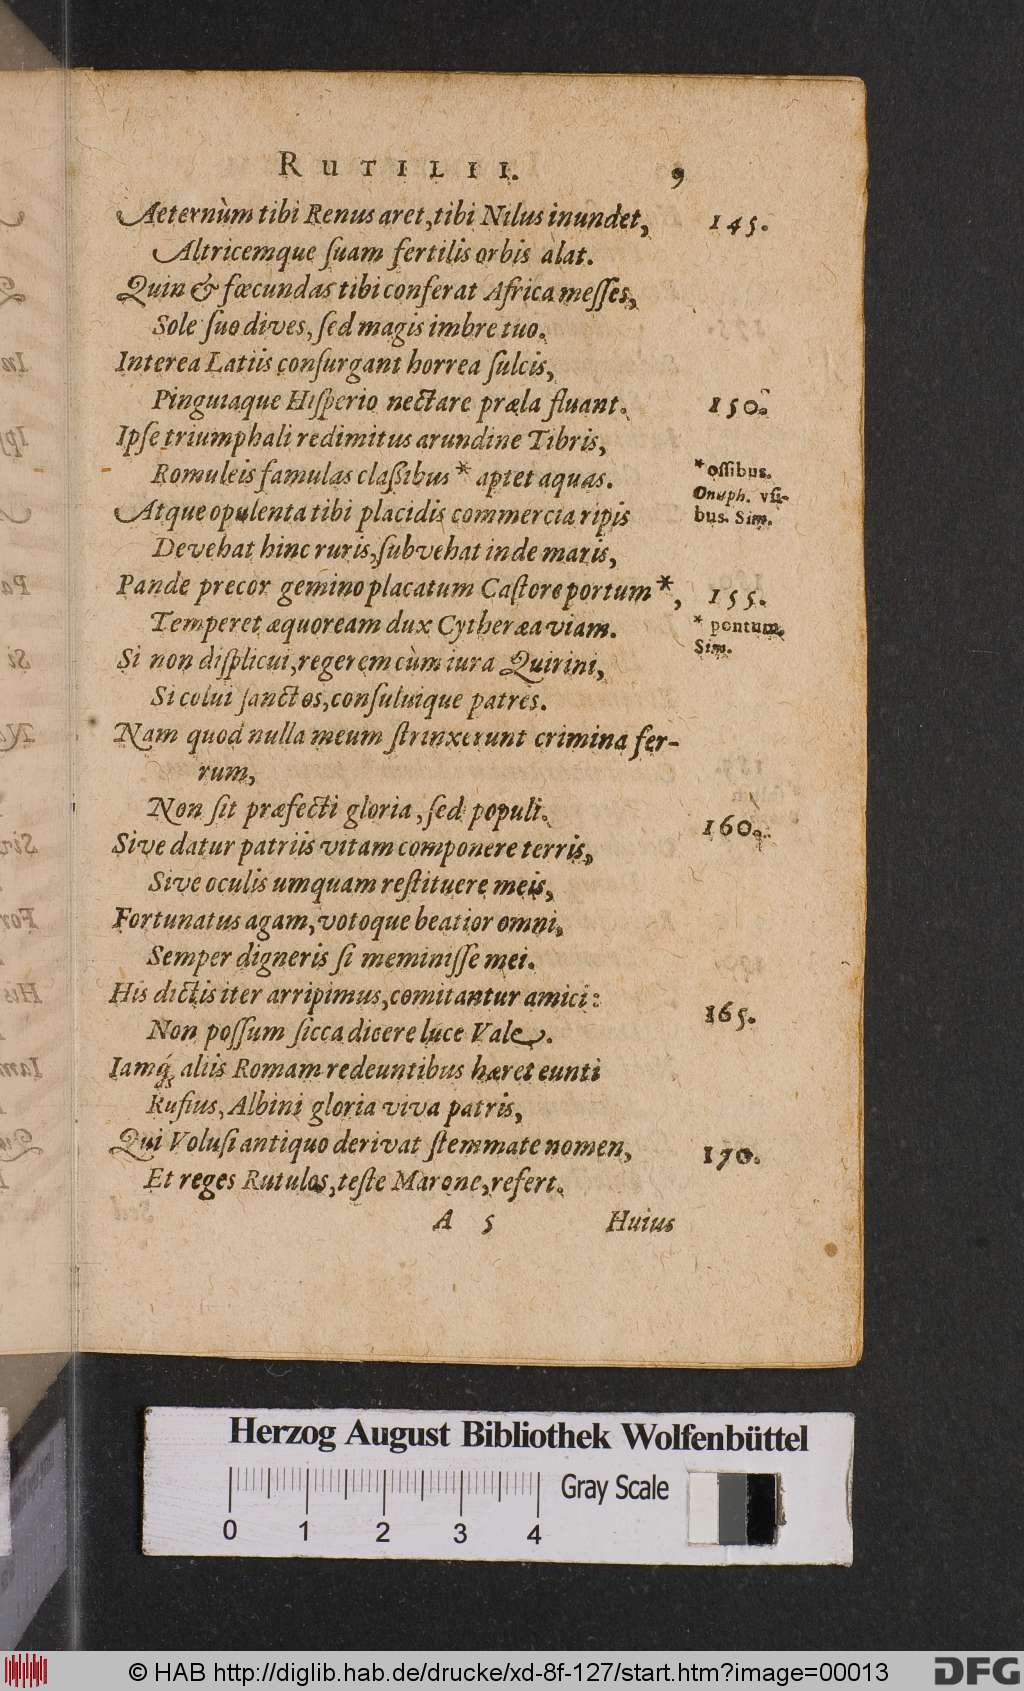 RUTILII. 9
Aeternùm tibi Renus aret, tibi Nilus inundet, 145.
Altricemque ſuam fertilis orbis alat.
Quin & fœcundas tibi conferat Africa meſſes,
Sole ſuo dives, ſed magis imbre tuo.
Interea Latiis conſurgant horrea ſulcis,
Pinguiaque Hiſperio nectare præla fluant. 150.
Ipſe triumphali redimitus arundine Tibris,
Romuleis famulas claſſibus* aptet aquas.
*oſſibus.
Onuph. vſi-
bus. Sim.
Atque opulenta tibi placidis commercia ripis
Devehat hinc ruris, ſubvehat inde maris,
Pande precor gemino placatum Caſtore portum*, 155.
* pontum.
Sim.
Temperet æquoream dux Cytheræa viam.
Si non diſplicui, regerem cùm iura Quirini,
Si colui ſanctos, conſuluique patres.
Nam quod nulla meum ſtrinxerunt crimina fer-
rum,
Non ſit præfecti gloria, ſed populi. 160.
Sive datur patriis vitam componere terris,
Sive oculis umquam reſtituere meis,
Fortunatus agam, votoque beatior omni,
Semper digneris ſi meminiſſe mei.
His dictis iter arripimus, comitantur amici: 165.
Non poſſum ſicca dicere luce Vale.
Iamq́; aliis Romam redeuntibus hæret eunti
Rufius, Albini gloria viva patris,
Qui Voluſi antiquo derivat ſtemmate nomen, 170.
Et reges Rutulos, teſte Marone, refert.
A 5 Huius
Herzog August Bibliothek Wolfenbüttel
0 1 2 3 4 Gray Scale
© HAB http://diglib.hab.de/drucke/xd-8f-127/start.htm?image=00013 DFG